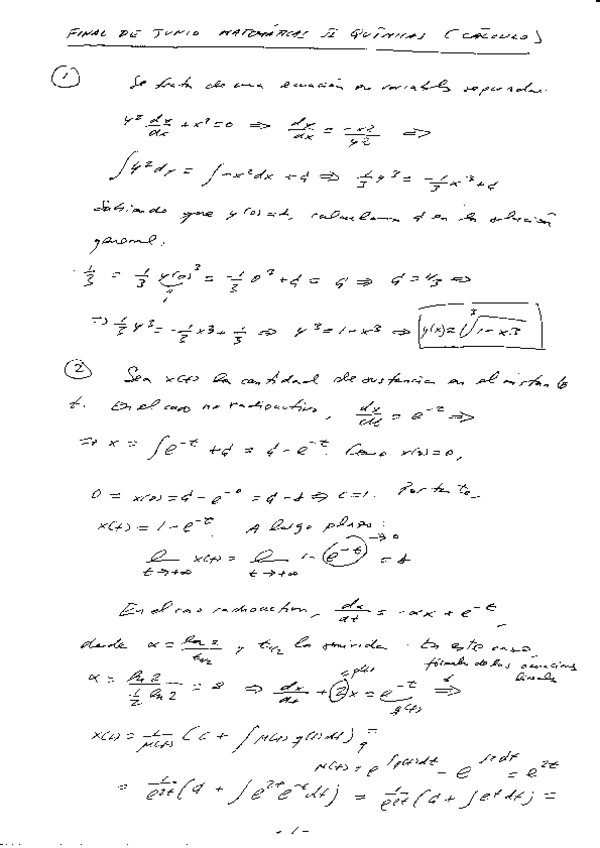 FINAL DE JUNIO MATEMÁTICAS II QUÍMICAS (CÁLCULO)
① Se trata de una ecuación en variables separadas.
y² dy/dx + x² = 0 ⇒ dy/dx = -x²/y² ⇒
∫y²dy = ∫-x²dx + C ⇒ 1/3 y³ = -1/3 x³ + C
Sabiendo que y(0)=1, calculamos C en la solución
general:
1/3 = 1/3 y(0)³ = -1/3 0³ + C = C ⇒ C = 1/3 ⇒
⇒ 1/3 y³ = -1/3 x³ + 1/3 ⇒ y³ = 1-x³ ⇒ y(x) = ∛(1-x³)
② Sea x(t) la cantidad de sustancia en el instante
t. En el caso no radioactivo, dx/dt = e^{-t} ⇒
⇒ x = ∫e^{-t} + C = C - e^{-t}. Como x(0)=0,
0 = x(0) = C - e^{-0} = C - 1 ⇒ C = 1. Por tanto
x(t) = 1 - e^{-t}. A largo plazo:
lim t→+∞ x(t) = lim t→+∞ 1 - e^{-t} →0 = 1
En el caso radioactivo, dx/dt = -αx + e^{-t},
donde α = ln 2/t_{1/2} y t_{1/2} la semivida. En este caso,
fórmula de las ecuaciones lineales
α = ln 2/(1/2 ln 2) = 2 ⇒ dx/dt + 2x = e^{-t} ⇒
= p(t) g(t)
x(t) = 1/μ(t) (C + ∫μ(t)g(t)dt) =
μ(t) = e^{∫p(t)dt} = e^{∫2dt} = e^{2t}
= 1/e^{2t} (C + ∫e^{2t}e^{-t}dt) = 1/e^{2t} (C + ∫e^{t}dt) =
- 1 -